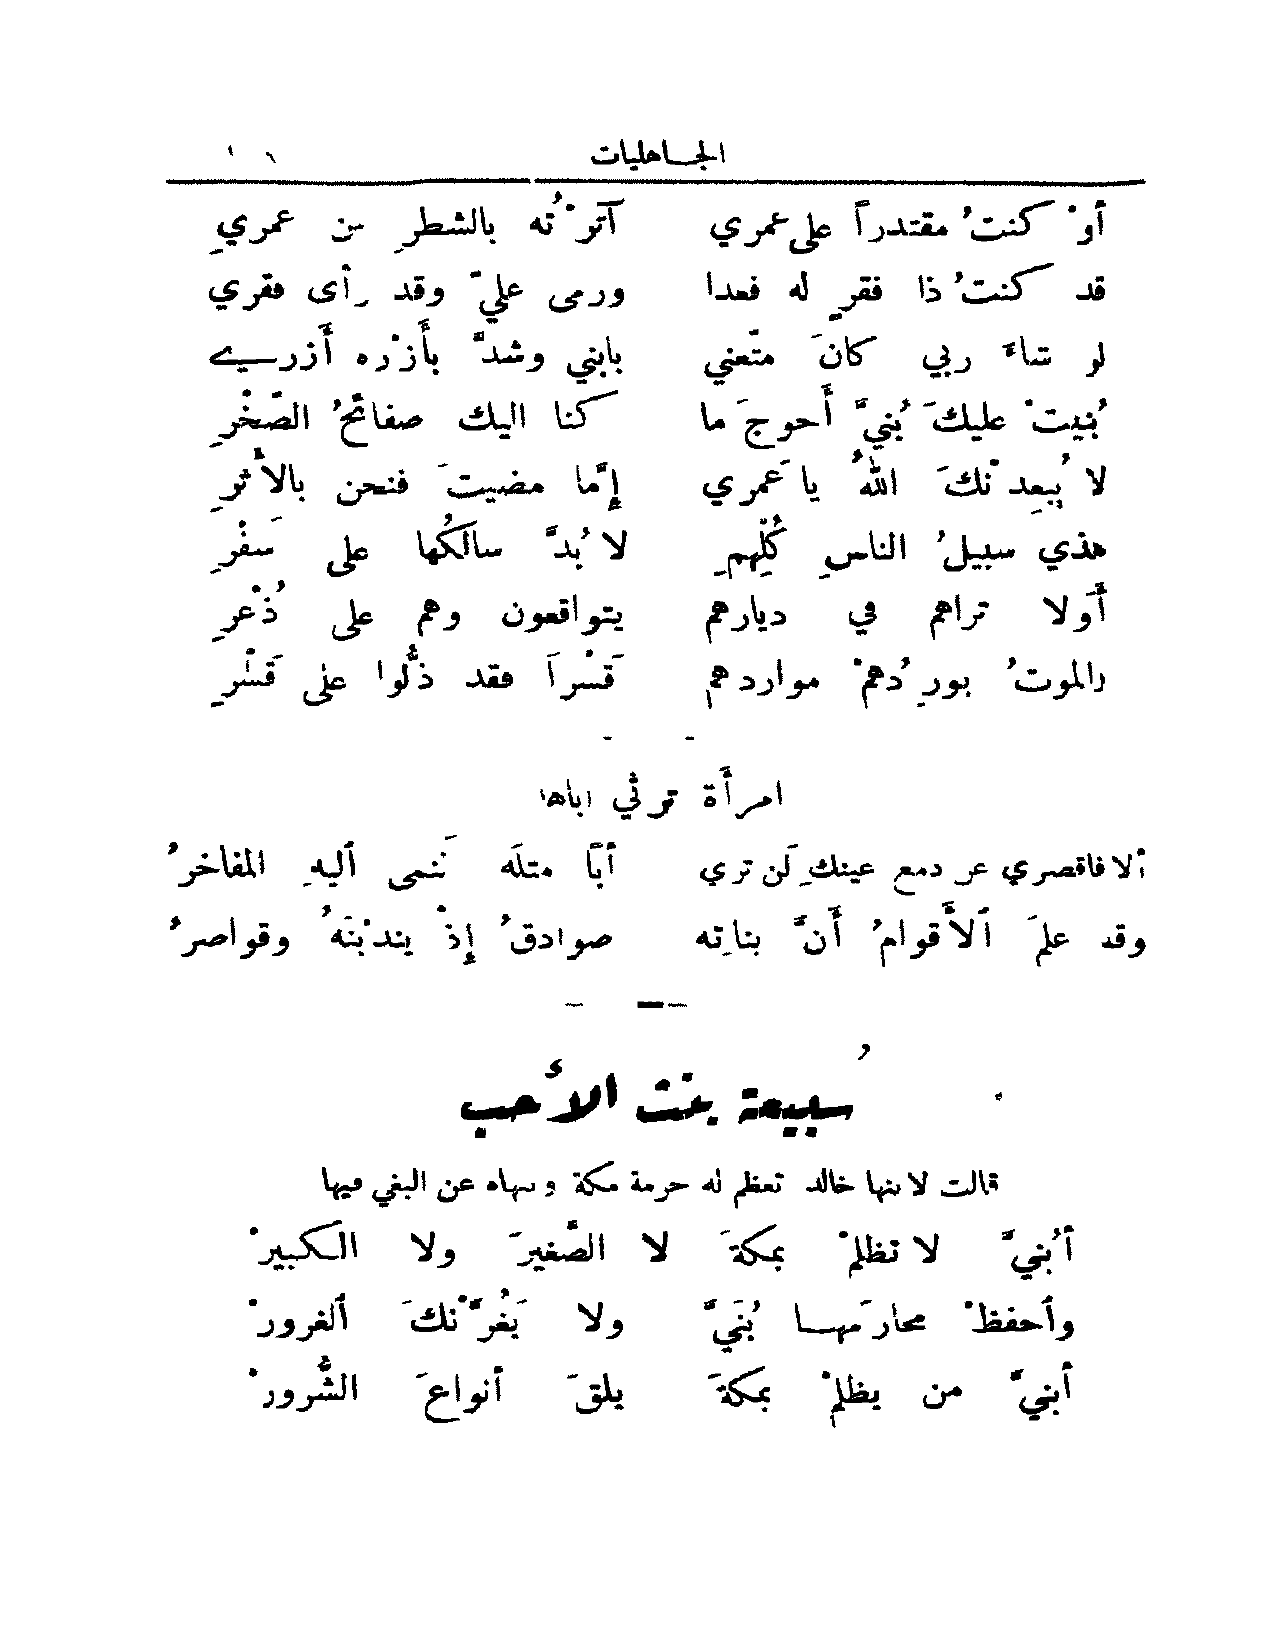 الجاهليات
أوْ كنتُ مقتدراً على عمري آثرْتُه بالشطرِ من عمري
قد كنتُ ذا فقرٍ له فعدا ورمى عليَّ وقد رأى فقري
لو شاءَ ربي كانَ متّعني بابني وشدَّ بأَزْره أَزري
بُنيتْ عليكَ بُنيَّ أَحوجَ ما كنا اليك صفائحُ الصّخْرِ
لا يُبعِدنْكَ اللهُ يا عَمري إِمَّا مضيتَ فنحن بالأَثرِ
هذي سبيلُ الناسِ كُلِّهمِ لا بُدَّ سالكُها على سَفْرِ
أَوَلا تراهم في ديارهم يتواقعون وهم على ذُعْرِ
والموتُ يورِدُهمْ مواردهم قَسْراً فقد ذلُّوا على قَسْرِ
امرأَة ترثي اباها
ألا فاقصري عن دمع عينكِ لَن تري أبًا مثلَه تَنمى اليهِ المفاخرُ
وقد علمَ الأَقوامُ أَنَّ بناتِه صوادقُ إِذْ يندبْنَهُ وقواصرُ
سُبيعة بنت الأَحب
قالت لابنها خالد تعظم له حرمة مكة وتنهاه عن البغي فيها
أبُنيَّ لا تظلمْ بمكةَ لا الصَّغيرَ ولا الكبيرْ
وأحفظْ محارمَها بُنَيَّ ولا يَغُرَّنْكَ ألغرورْ
أبنيَّ من يظلمْ بمكةَ يلقَ أنواعَ الشُّرورْ